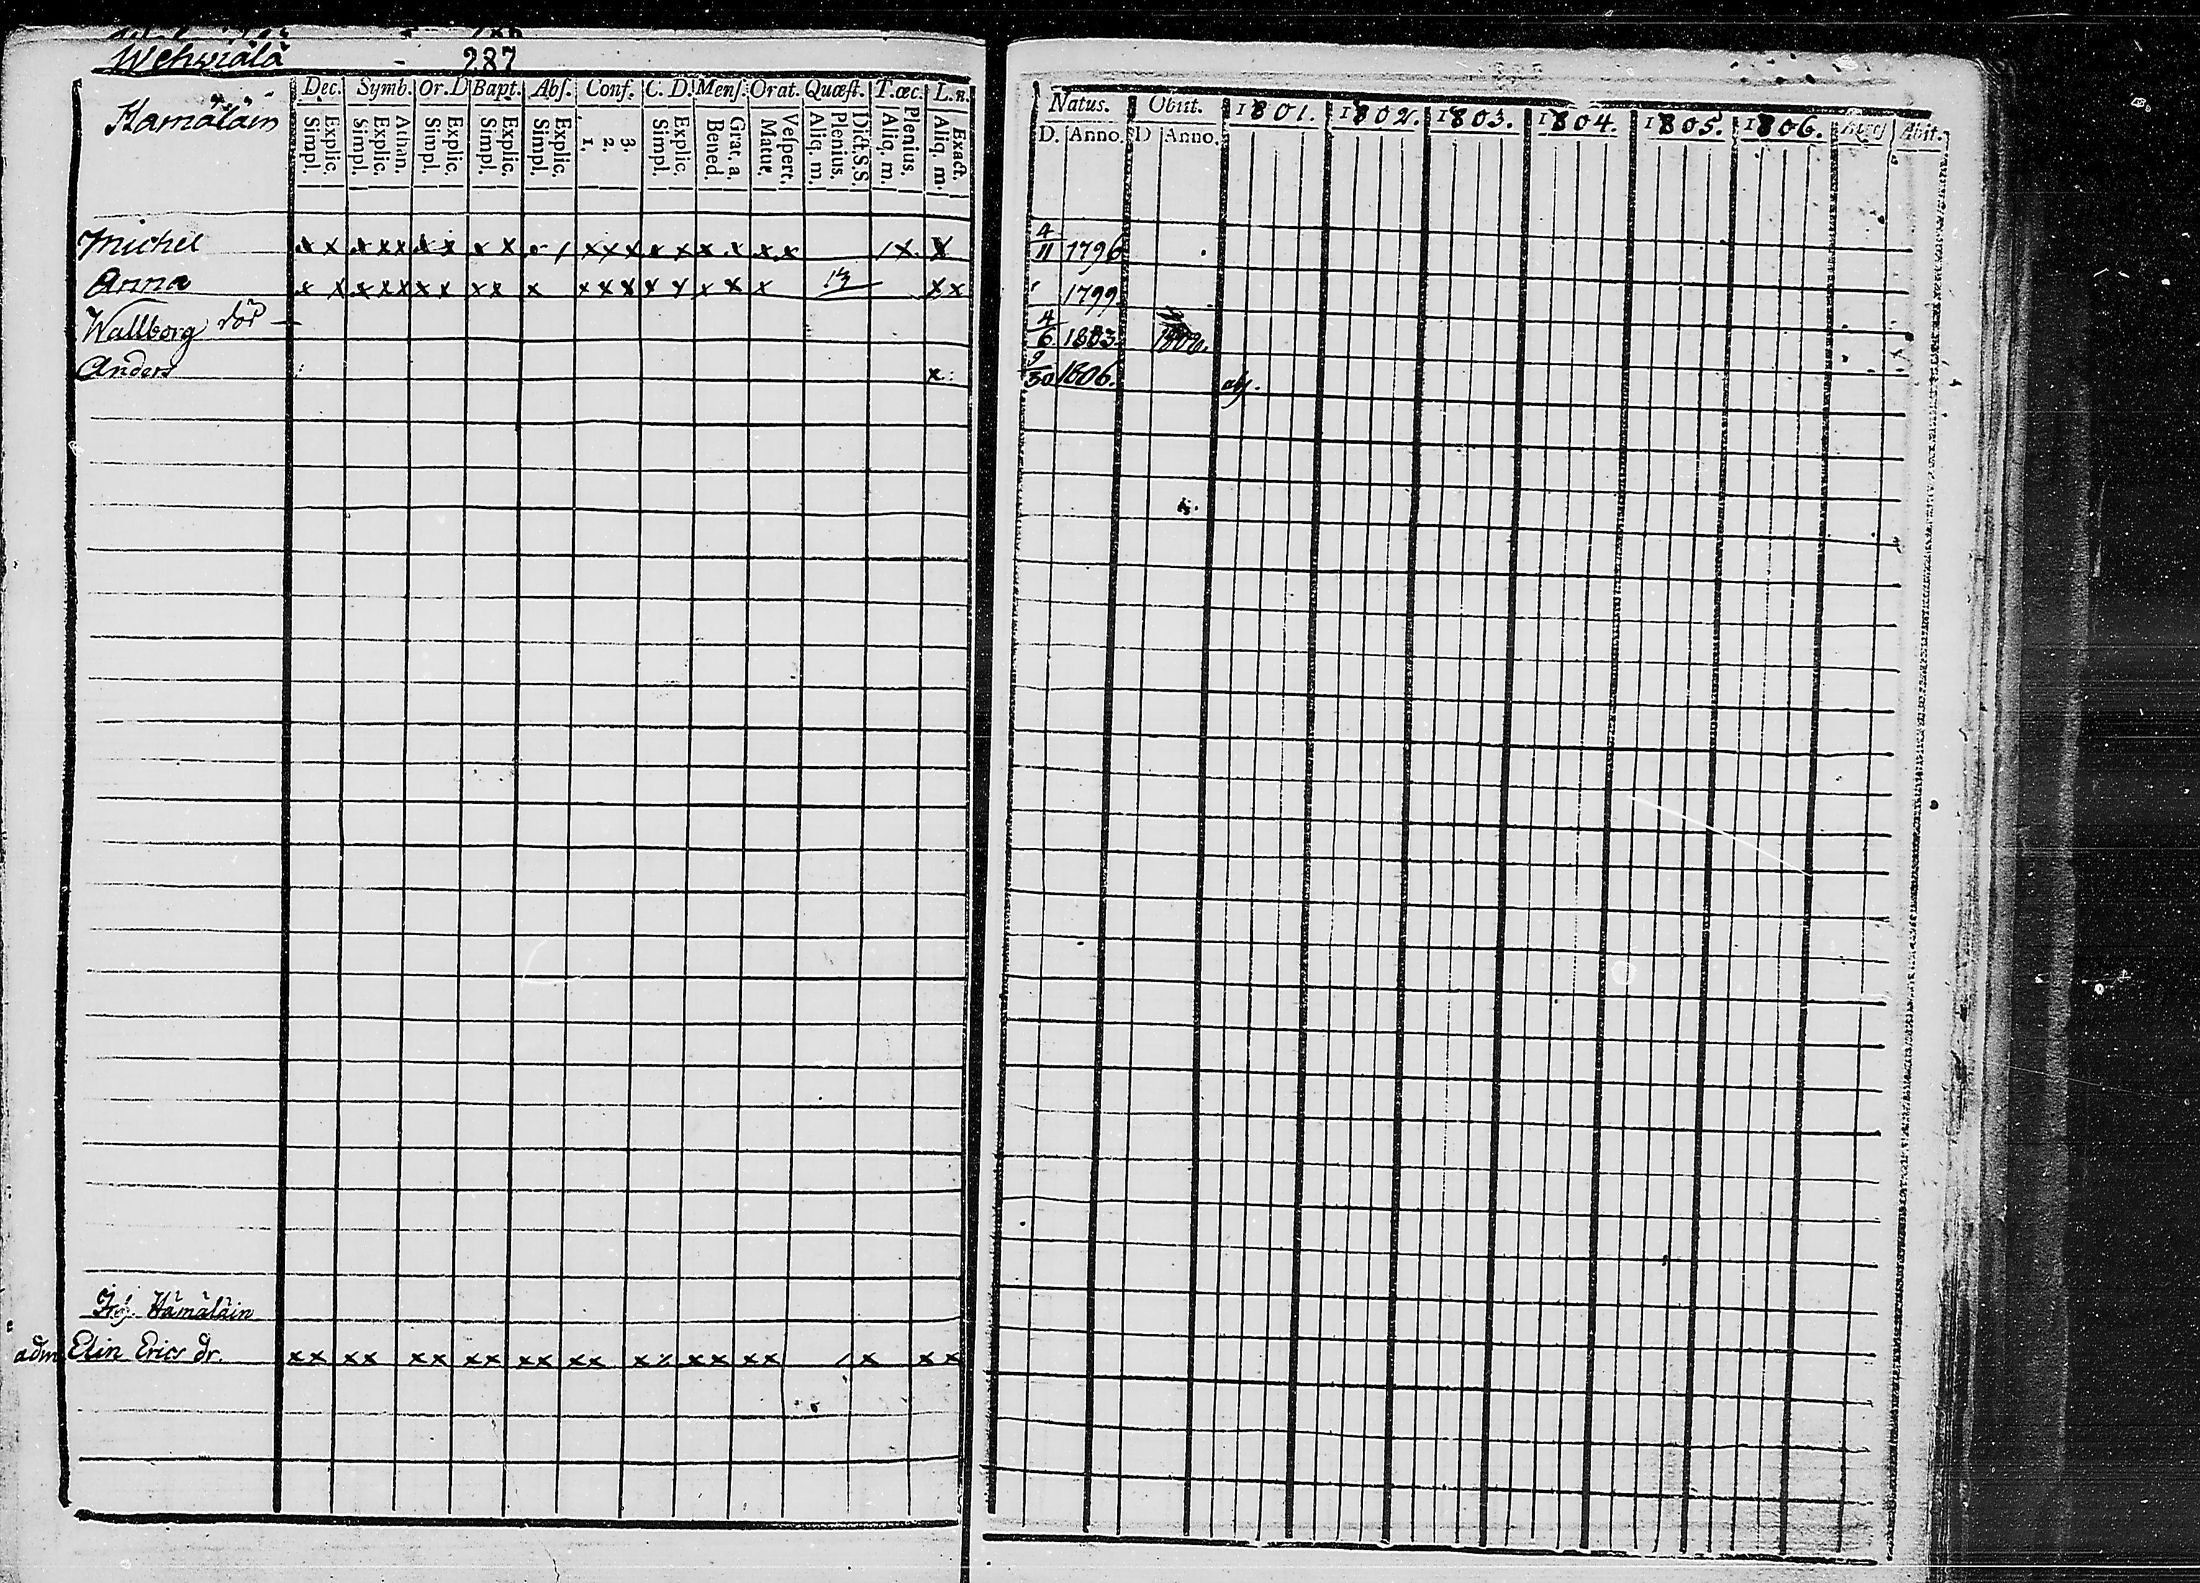 Wehwiälä - 287
Hämäläin
Dec. Symb. Or. D Bapt. Abſ. Conf. C. D. Menſ. Orat. Quæſt. T. œc. L. n.
Simpl. Explic. Simpl. Explic. Athan. Simpl. Explic. Simpl. Explic. Simpl. Explic. 1. 2. 3. Simpl. Explic. Bened. Grat. a. Matut. Veſpert. Aliq. m. Plenius. Dict. S. S. Aliq. m. Plenius. Aliq. m. Exact.
Natus. Obiit. 1801. 1802. 1803. 1804. 1805. 1806. Abit.
D. Anno. D Anno.
Michel x x x x x x x x x x x x x x x x x x x 1 x x 4/11 1796
Anna x x x x x x x x x x x x x x x x x x x x 1799
Wallborg död 4/6 1803
Anders x 9/30 1806.
Hämäläin
adm Elin Erics dr. x x x x x x x x x x x x x x x x x x / x x x